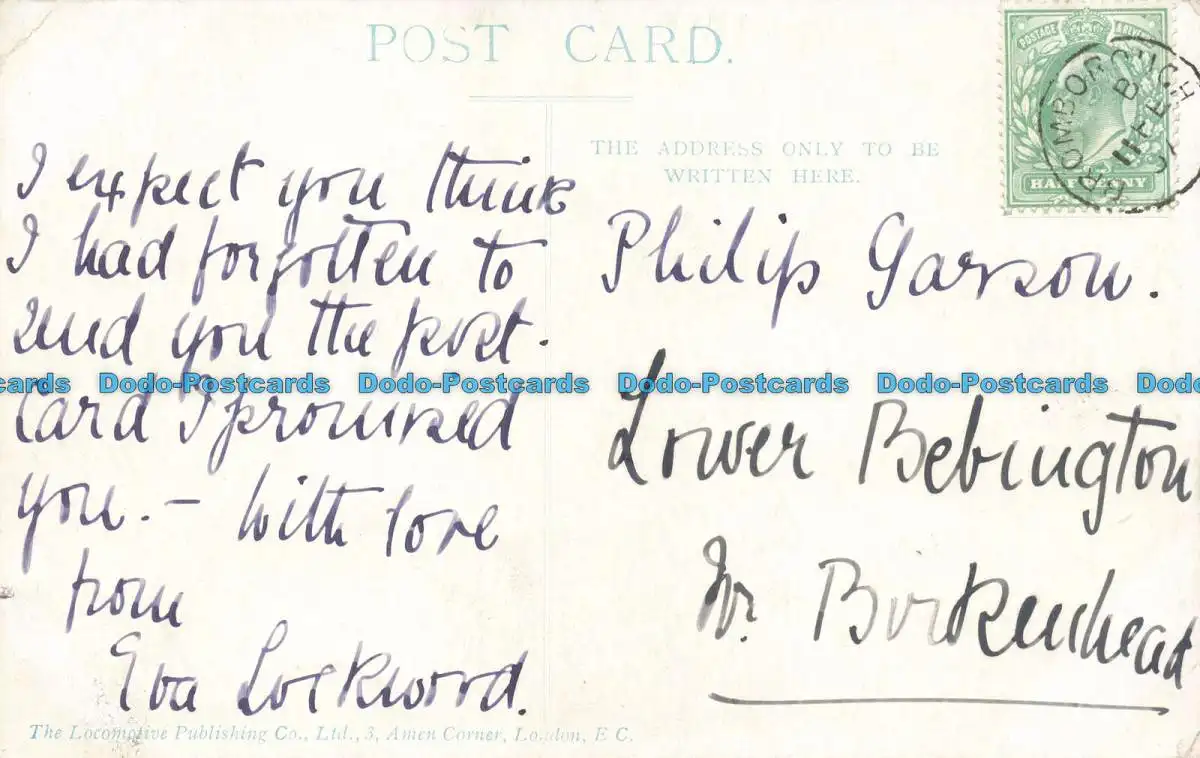 POST CARD.
THE ADDRESS ONLY TO BE
WRITTEN HERE.
POSTAGE
HALFPENNY
BROMBOROUGH
11 FE
07
I expect you think
I had forgotten to
send you the post-
card I promised
you. – With love
from
Eva Lockwood.
Philip Garson.
Lower Bebington
Nr. Birkenhead
Dodo-Postcards Dodo-Postcards Dodo-Postcards Dodo-Postcards
The Locomotive Publishing Co., Ltd., 3, Amen Corner, London, E C.